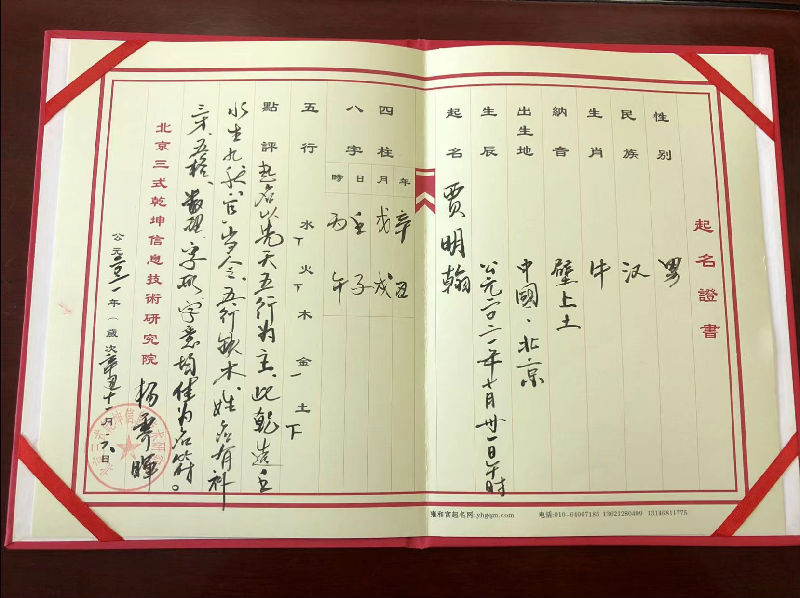 起名證書
性别 男
民族 汉
生肖 牛
納音 壁上土
出生地 中國·北京
生辰 公元二〇二一年十月卅一日午時
起名 賈明翰
四柱 年 月 日 時
八字 辛丑 戊戌 壬子 丙午
五行 水下 火下 木 金一 土下
點評 起名以先天五行为主,此乾造壬
水生九秋,官当令,五行缺木,姓名有补
三才、五格、数理、字形、字意均佳为名符。
北京三式乾坤信息技術研究院
公元二〇二一年(歲次辛丑十一月 日
雍和宫起名网:yhgqm.com 电话:010-64067185 13621280499 13146811775